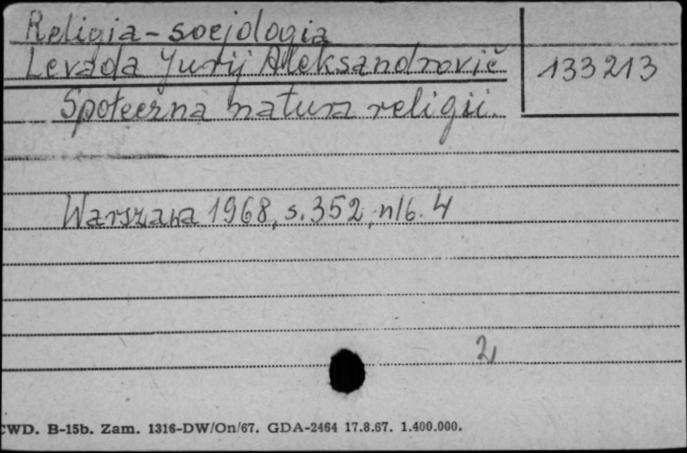 Religia - socjologia
Levada Jurij Aleksandrovič
133213
Społeczna natura religii.
Warszawa 1968, s. 352, nlb. 4
2
CWD. B-15b. Zam. 1316-DW/On/67. GDA-2464 17.8.67. 1.400.000.